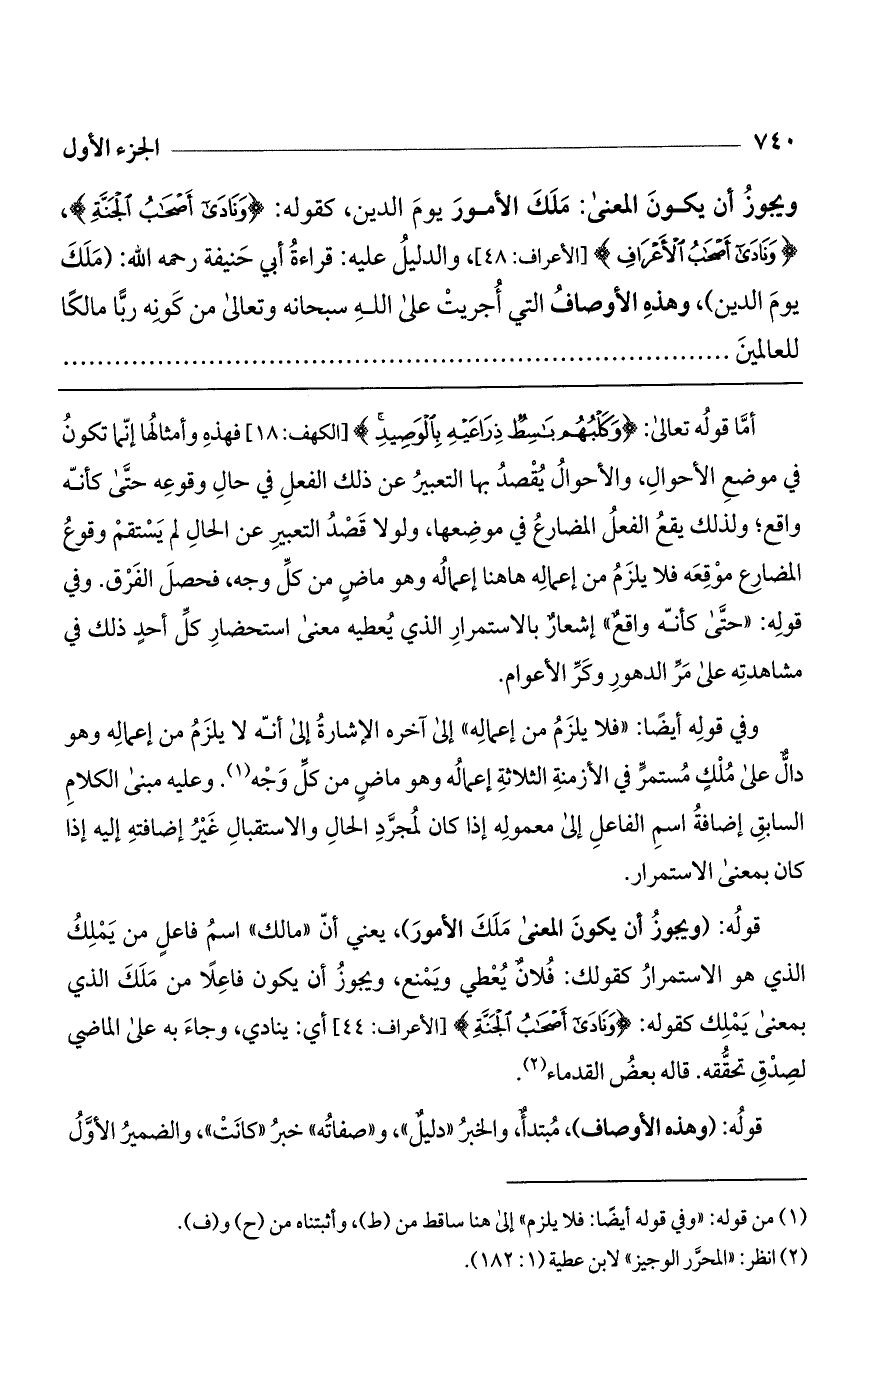 ٧٤٠ الجزء الأول
ويجوزُ أن يكـونَ المعنىٰ: مَلَكَ الأمـورَ يومَ الدين، كقوله: ﴿وَنَادَىٰٓ أَصْحَٰبُ ٱلْجَنَّةِ﴾،
﴿وَنَادَىٰٓ أَصْحَٰبُ ٱلْأَعْرَافِ﴾ [الأعراف: ٤٨]، والدليلُ عليه: قراءةُ أبي حَنيفة رحمه الله: (مَلَكَ
يومَ الدين)، وهذهِ الأوصافُ التي أُجريتْ علىٰ اللـهِ سبحانه وتعالىٰ من كَونِه ربًّا مالكًا
للعالمينَ ........................................................................
أمَّا قولُه تعالىٰ: ﴿وَكَلْبُهُم بَٰسِطٌ ذِرَاعَيْهِ بِٱلْوَصِيدِ ۚ﴾ [الكهف: ١٨] فهذهِ وأمثالُها إنّما تكونُ
في موضعِ الأحوالِ، والأحوالُ يُقْصدُ بها التعبيرُ عن ذلك الفعلِ في حالِ وقوعِه حتَّىٰ كأنـّه
واقع؛ ولذلك يقعُ الفعلُ المضارعُ في موضِعها، ولولا قَصْدُ التعبيرِ عن الحالِ لم يَسْتقمْ وقوعُ
المضارعِ موْقِعَه فلا يلزَمُ من إعمالِه هاهنا إعمالُه وهو ماضٍ من كلِّ وجه، فحصلَ الفَرْق. وفي
قولِه: «حتَّىٰ كأنـّه واقعٌ» إشعارٌ بالاستمرارِ الذي يُعطيه معنىٰ استحضارِ كلِّ أحدٍ ذلك في
مشاهدتِه علىٰ مَرِّ الدهورِ وكَرِّ الأعوام.
وفي قولِه أيضًا: «فلا يلزَمُ من إعمالِه» إلىٰ آخره الإشارةُ إلىٰ أنـّه لا يلزَمُ من إعمالِه وهو
دالٌّ علىٰ مُلْكٍ مُستمرٍّ في الأزمنةِ الثلاثةِ إعمالُه وهو ماضٍ من كلِّ وَجْه(١). وعليه مبنىٰ الكلامِ
السابقِ إضافةُ اسمِ الفاعلِ إلىٰ معمولِه إذا كان لمُجرَّدِ الحالِ والاستقبالِ غَيْرُ إضافتهِ إليه إذا
كان بمعنىٰ الاستمرار.
قولُه: (ويجوزُ أن يكونَ المعنىٰ مَلَكَ الأمورَ)، يعني أنّ «مالك» اسمُ فاعلٍ من يَمْلِكُ
الذي هو الاستمرارُ كقولك: فُلانٌ يُعْطي ويَمْنع، ويجوزُ أن يكون فاعِلًا من مَلَكَ الذي
بمعنىٰ يَمْلِك كقوله: ﴿وَنَادَىٰٓ أَصْحَٰبُ ٱلْجَنَّةِ﴾ [الأعراف: ٤٤] أي: ينادي، وجاءَ به علىٰ الماضي
لصِدْقِ تحقُّقه. قاله بعضُ القدماء(٢).
قولُه: (وهذه الأوصاف)، مُبتدأٌ، والخبرُ «دليلٌ»، و«صفاتُه» خبرُ «كانَتْ»، والضميرُ الأوَّلُ
(١) من قوله: «وفي قوله أيضًا: فلا يلزم» إلىٰ هنا ساقط من (ط)، وأثبتناه من (ح) و(ف).
(٢) انظر: «المحرَّر الوجيز» لابن عطية (١: ١٨٢).